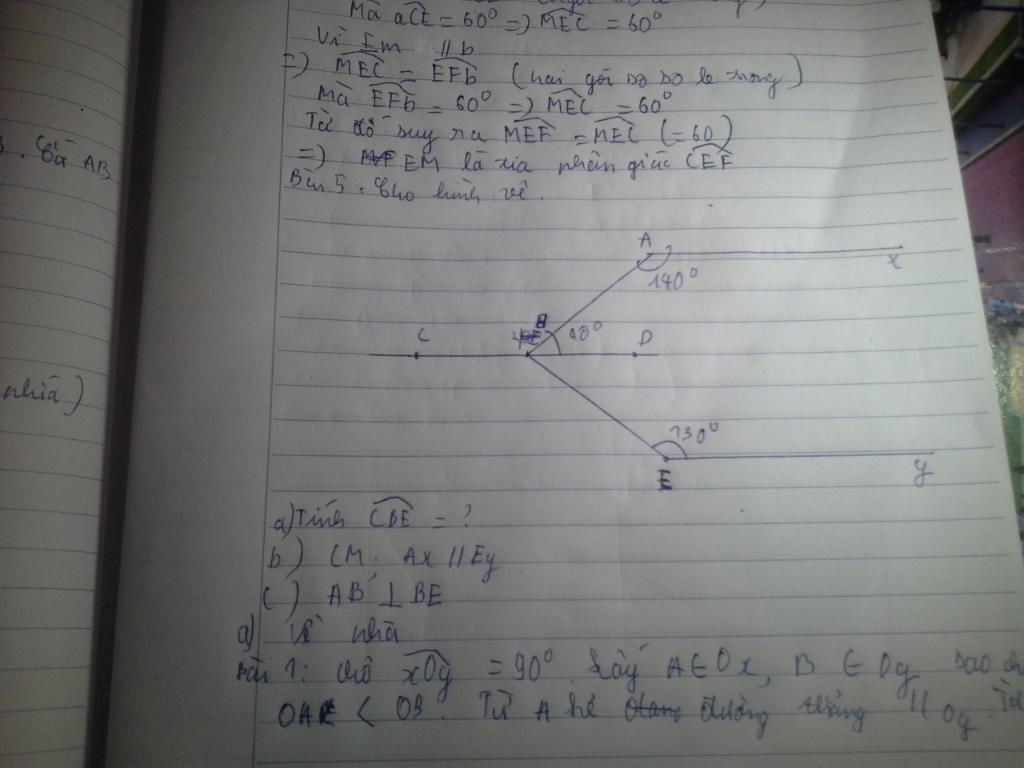 Mà aCE = 60° => MEC = 60°
3. Cữa AB
Vì Em // b
=> MEC = EFb (hai góc so so le trong)
Mà EFb = 60° => MEC = 60°
Từ đố suy ra MEF = MEC (= 60)
=> EM là tia phân giác CEF
Bài 5: Cho hình vẽ.
A
x
140°
B
40°
C
D
130°
nhià)
E
y
a) Tính CBE = ?
b) CM. Ax // Ey
c) AB ⊥ BE
a) Về nhà
Bài 1: Chô xOy = 90°. Lấy A ∈ Ox, B ∈ Oy sao
OA < OB. Từ A kẻ đường thẳng // Oy. Từ